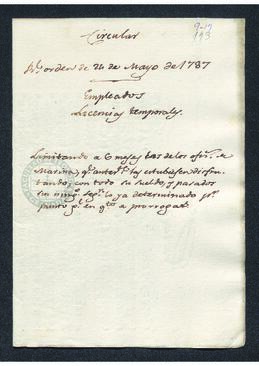 9-17
193
Circular
Rl. orden de 24 de Mayo de 1787
Empleados
Licencias temporales.
Limitando a 6 meses las de los ofis. de
Marina, qe. antes las estubiesen disfru-
tando, con todo su sueldo, y pasados
sin ningn. segn. lo ya determinado pr.
punto gl. en qto. a prorrogas.